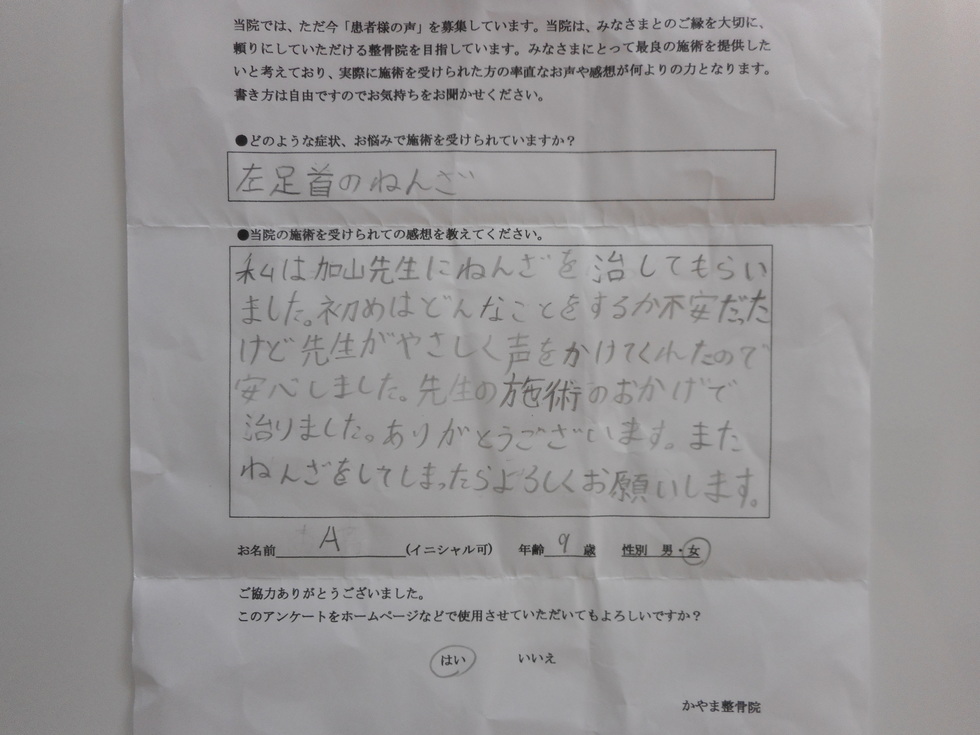 当院では、ただ今「患者様の声」を募集しています。当院は、みなさまとのご縁を大切に、
頼りにしていただける整骨院を目指しています。みなさまにとって最良の施術を提供した
いと考えており、実際に施術を受けられた方の率直なお声や感想が何よりの力となります。
書き方は自由ですのでお気持ちをお聞かせください。
●どのような症状、お悩みで施術を受けられていますか？
左足首のねんざ
●当院の施術を受けられての感想を教えてください。
私は加山先生にねんざを治してもらい
ました。初めはどんなことをするか不安だった
けど先生がやさしく声をかけてくれたので
安心しました。先生の施術のおかげで
治りました。ありがとうございます。また
ねんざをしてしまったらよろしくお願いします。
お名前 A (イニシャル可) 年齢 9 歳 性別 男・女
ご協力ありがとうございました。
このアンケートをホームページなどで使用させていただいてもよろしいですか？
はい いいえ
かやま整骨院